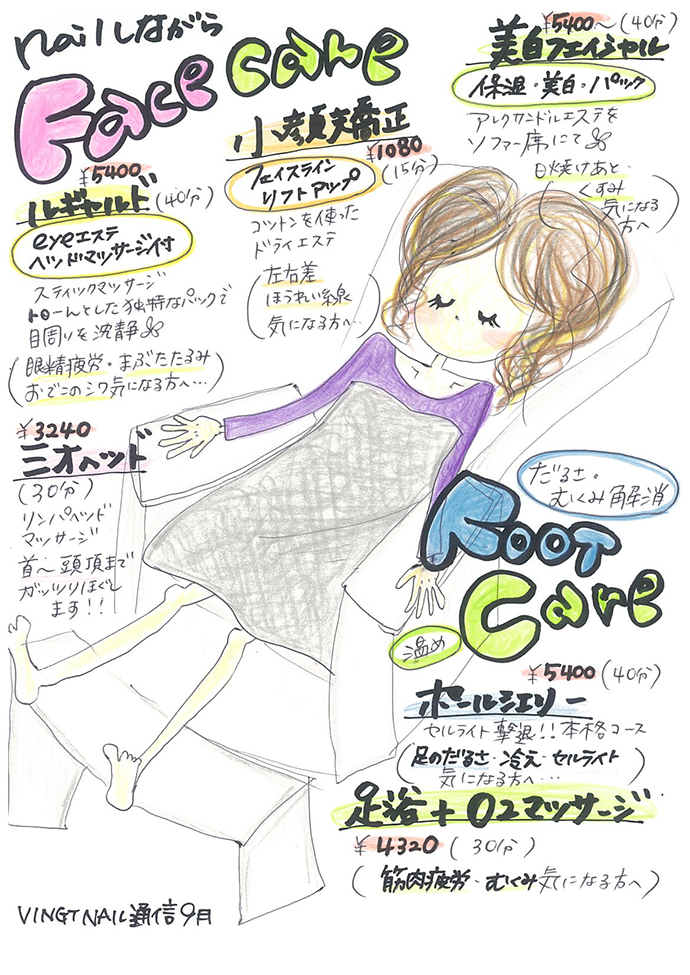 nailしながら
Face care
¥5400~(40分)
美白フェイシャル
保湿・美白・パック
アレクサンドルエステを
ソファー席にて
日焼けあと・
くすみ
気になる
方へ
小顔矯正
¥1080
(15分)
フェイスライン
リフトアップ
コットンを使った
ドライエステ
左右差
ほうれい線
気になる方へ…
¥5400
ルギャルド(40分)
eyeエステ
ヘッドマッサージ付
スティックマッサージ
トローんとした独特なパックで
目周りを沈静
眼精疲労・まぶたたるみ
おでこのシワ気になる方へ…
¥3240
三才ヘッド
(30分)
リンパヘッド
マッサージ
首〜頭頂まで
ガッツリほぐし
ます!!
だるさ・
むくみ解消
Foot
Care
温め
¥5400(40分)
ポールシェリー
セルライト撃退!!本格コース
(足のだるさ・冷え・セルライト
気になる方へ…)
足浴+O2マッサージ
¥4320(30分)
(筋肉疲労・むくみ気になる方へ)
VINGT NAIL通信9月